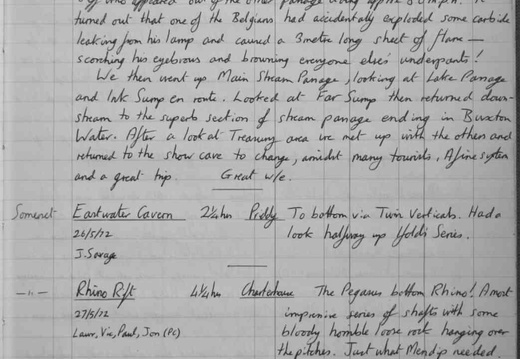 turned out that one of the Belgians had accidentally exploded some carbide
leaking from his lamp and caused a 3metre long sheet of flame —
scorching his eyebrows and browning everyone else's underpants!
We then went up Main Stream Passage, looking at Lake Passage
and Ink Sump en route. Looked at Far Sump then returned down-
stream to the superb section of stream passage ending in Buxton
Water. After a look at Treasury area we met up with the others and
returned to the show cave to change, amidst many tourists. A fine system
and a great trip. Great w/e.
Somerset Eastwater Cavern 2¼hrs Priddy To bottom via Twin Verticals. Had a
26/5/72 look halfway up Dolds Series.
J. Savage
—"— Rhino Rift 4¼hrs Charterhouse The Pegasus bottom Rhino! A most
27/5/72 impressive series of shafts with some
Laur, Vic, Paul, Jon (PC) bloody horrible loose rock hanging over
the pitches. Just what Mendip needed.